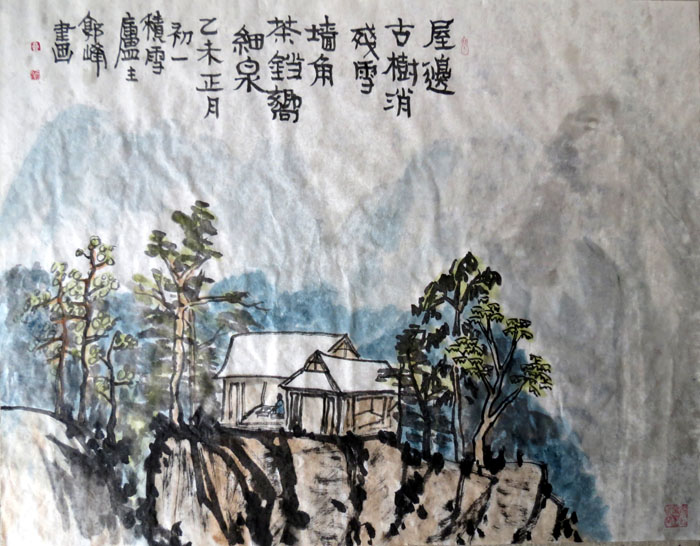 屋邊
古樹消
残雪
墙角
茶鐺響
細泉
乙未正月
初一
積雪
廬主
峰
書画